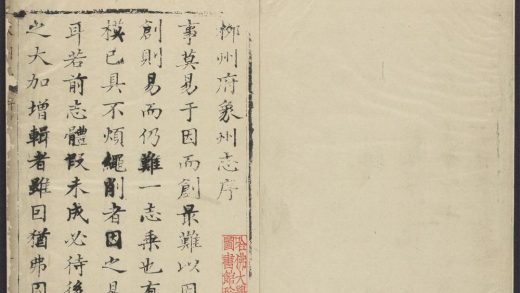 柳州府象州志序
事莫易于因而創最難以因
創則易而仍難一志乗也有
模已具不煩繩削者因之是
耳若前志體段未成必待後
之大加增輯者雖因猶弗因
哈佛大學
圖書館珍